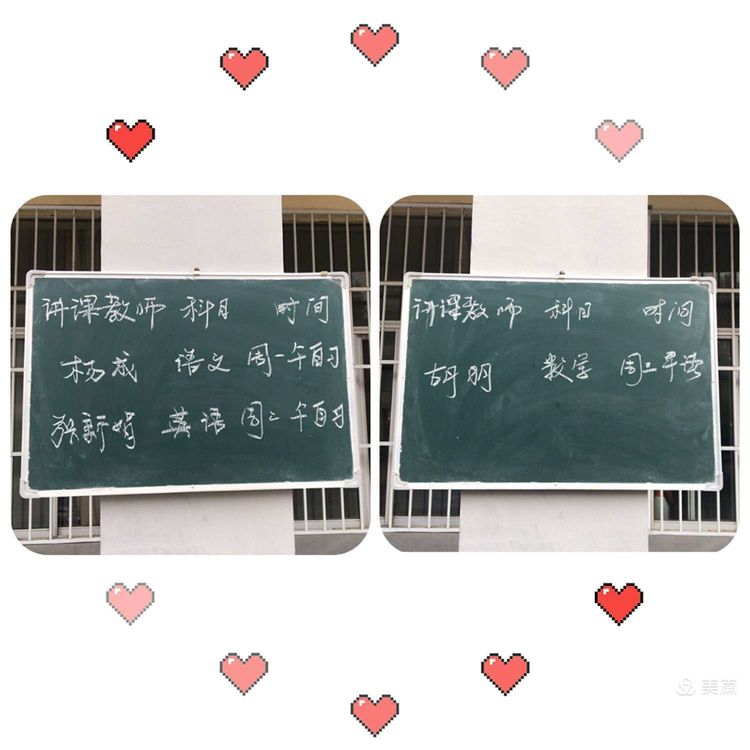 讲课教师 科目 时间
杨成 语文 周一午自习
张新娟 英语 周二午自习
讲课教师 科目 时间
胡明 数学 周二早读
美篇